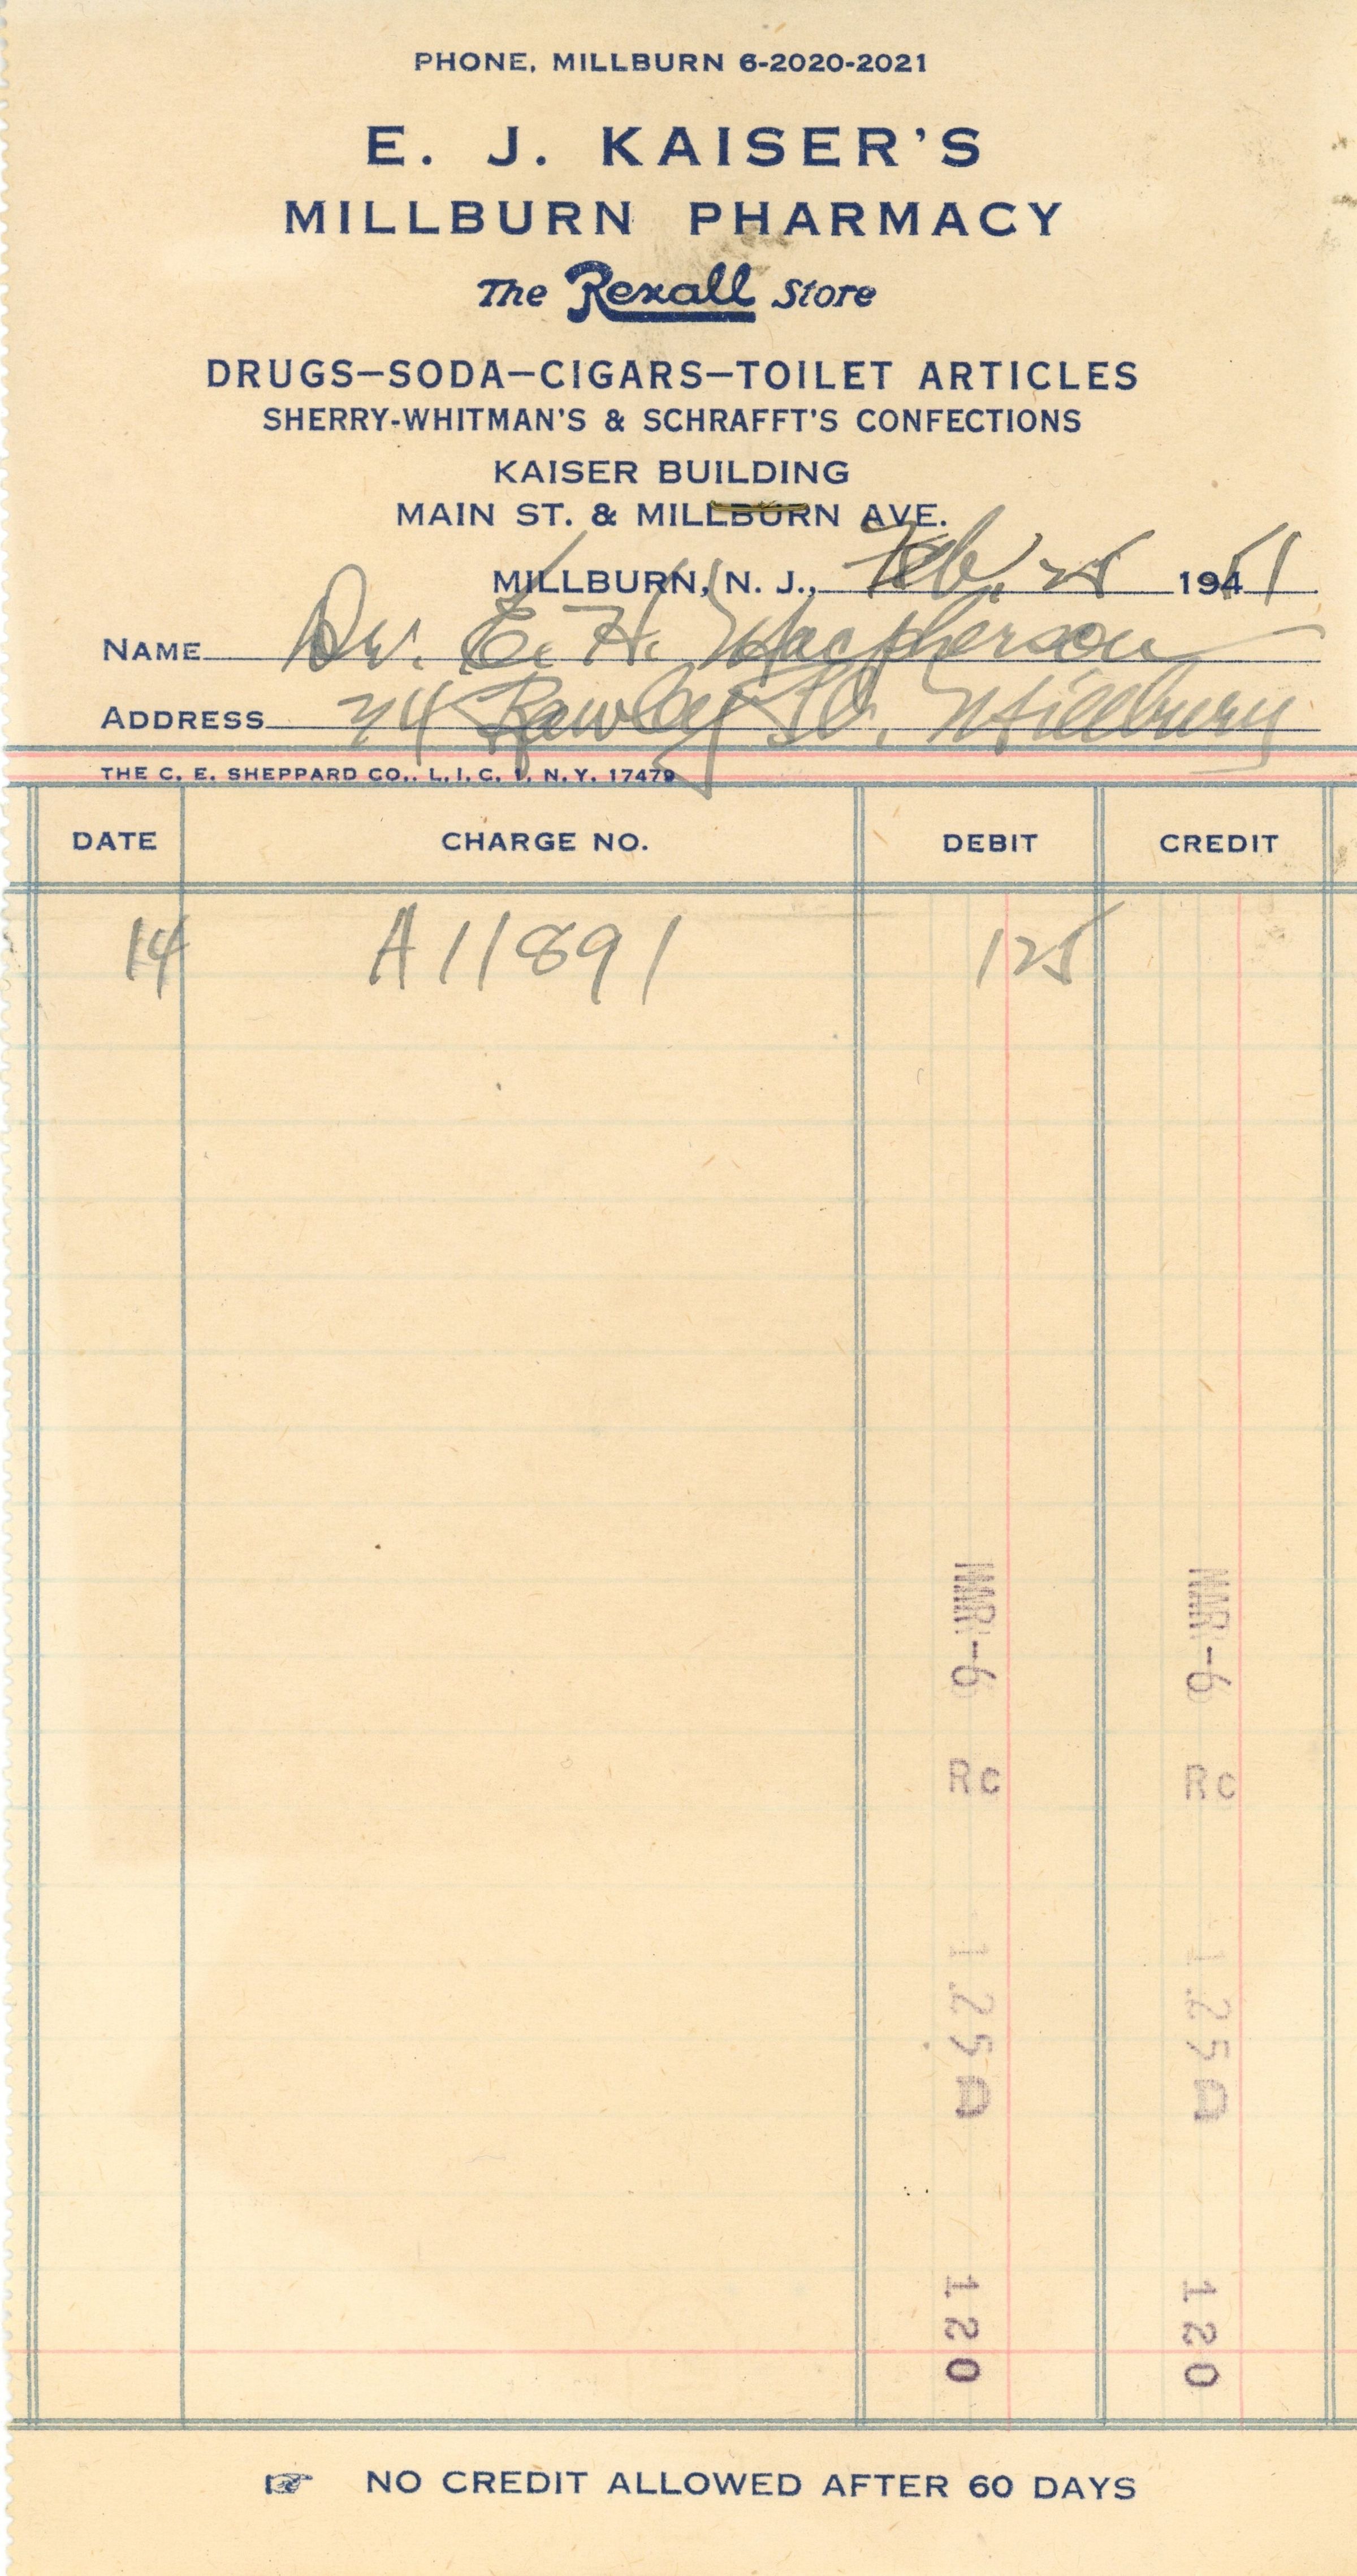 PHONE, MILLBURN 6-2020-2021
E. J. KAISER'S
MILLBURN PHARMACY
The Rexall Store
DRUGS—SODA—CIGARS—TOILET ARTICLES
SHERRY-WHITMAN'S & SCHRAFFT'S CONFECTIONS
KAISER BUILDING
MAIN ST. & MILLBURN AVE.
MILLBURN, N. J., Feb. 25 194 51
NAME Dr. E. H. Macpherson
ADDRESS 24 Millburn
THE C. E. SHEPPARD CO., L. I. C. 1, N. Y. 17479
DATE CHARGE NO. DEBIT CREDIT
14 A11891 125
MAR-6 MAR-6
Rc Rc
1.25 1.25
120 120
☞ NO CREDIT ALLOWED AFTER 60 DAYS